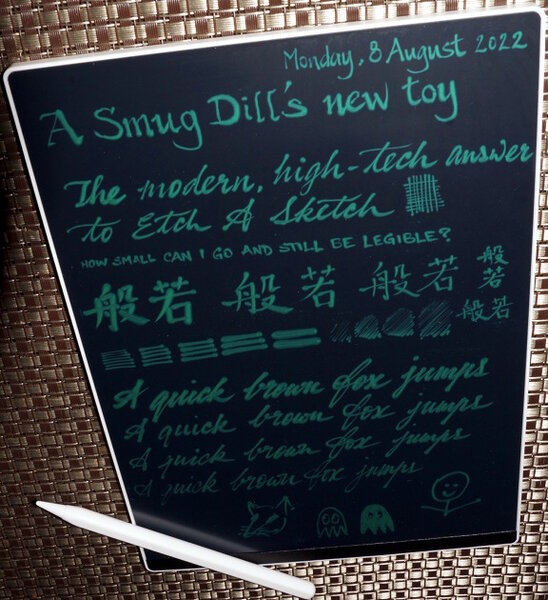 Monday, 8 August 2022
A Smug Dill's new toy
The modern, high-tech answer
to Etch A Sketch
HOW SMALL CAN I GO AND STILL BE LEGIBLE?
般若 般若 般若 般若
般若
A quick brown fox jumps
A quick brown fox jumps
A quick brown fox jumps
A quick brown fox jumps